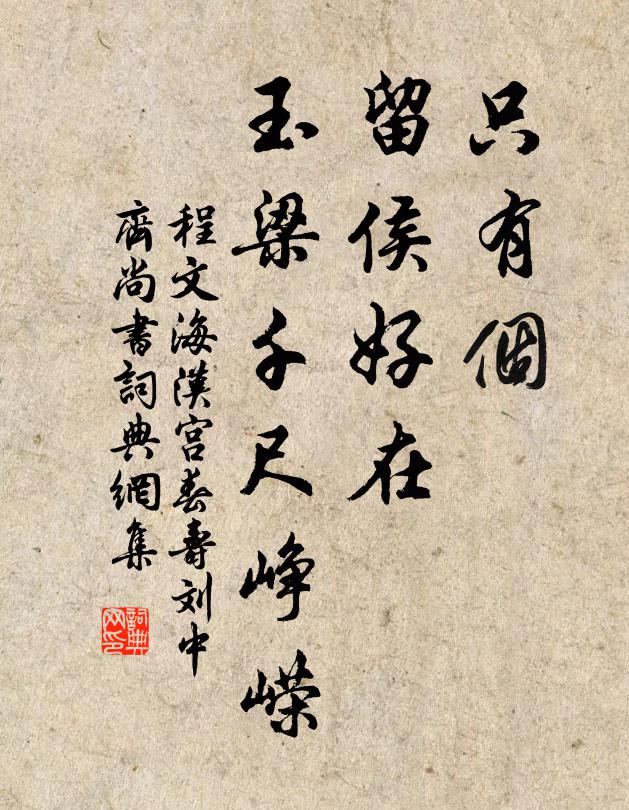 只有個
留侯好在
玉梁千尺峥嶸
程文海漢宮春壽刘中
齊尚書詞典網集
詞典
网印